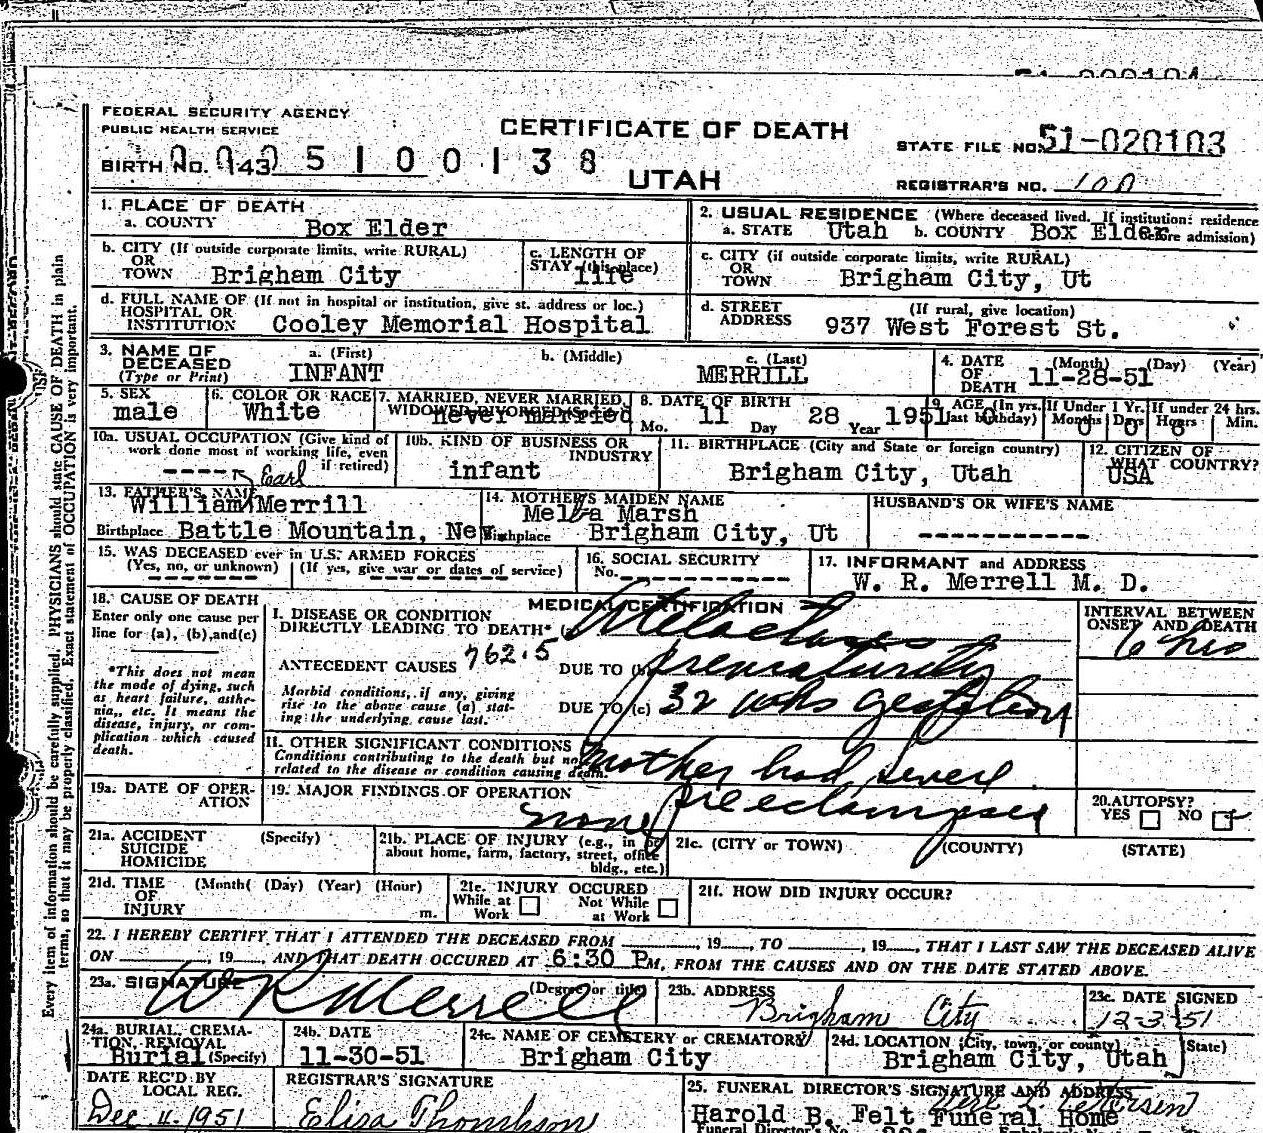 FEDERAL SECURITY AGENCY
PUBLIC HEALTH SERVICE
CERTIFICATE OF DEATH
STATE FILE NO. 51-020103
BIRTH NO. 143 5 1 0 0 1 3 8
UTAH
REGISTRAR'S NO. 100
1. PLACE OF DEATH
a. COUNTY Box Elder
2. USUAL RESIDENCE (Where deceased lived. If institution: residence before admission)
a. STATE Utah b. COUNTY Box Elder
b. CITY (If outside corporate limits, write RURAL)
OR
TOWN Brigham City
c. LENGTH OF
STAY (this place)
life
c. CITY (if outside corporate limits, write RURAL)
OR
TOWN Brigham City, Ut
d. FULL NAME OF (If not in hospital or institution, give st. address or loc.)
HOSPITAL OR
INSTITUTION Cooley Memorial Hospital
d. STREET (If rural, give location)
ADDRESS 937 West Forest St.
3. NAME OF
DECEASED
(Type or Print)
a. (First)
INFANT
b. (Middle)
c. (Last)
MERRILL
4. DATE (Month) (Day) (Year)
OF
DEATH 11-28-51
5. SEX
male
6. COLOR OR RACE
White
7. MARRIED, NEVER MARRIED,
WIDOWED, DIVORCED (Specify)
never married
8. DATE OF BIRTH
Mo. 11 Day 28 Year 1951
9. AGE (In yrs. last birthday) 0
If Under 1 Yr. Months 0 Days 0
If under 24 hrs. Hours 6 Min.
10a. USUAL OCCUPATION (Give kind of
work done most of working life, even
if retired)
----
10b. KIND OF BUSINESS OR
INDUSTRY
infant
11. BIRTHPLACE (City and State or foreign country)
Brigham City, Utah
12. CITIZEN OF
WHAT COUNTRY?
USA
13. FATHER'S NAME
Earl
William Merrill
Birthplace Battle Mountain, Nev.
14. MOTHER'S MAIDEN NAME
Melba Marsh
Birthplace Brigham City, Ut
HUSBAND'S OR WIFE'S NAME
-----------
15. WAS DECEASED ever in U.S. ARMED FORCES
(Yes, no, or unknown) (If yes, give war or dates of service)
16. SOCIAL SECURITY
No. -----------
17. INFORMANT and ADDRESS
W. R. Merrell M. D.
18. CAUSE OF DEATH
Enter only one cause per
line for (a), (b), and (c)
*This does not mean
the mode of dying, such
as heart failure, asthe-
nia, etc. It means the
disease, injury, or com-
plication which caused
death.
MEDICAL CERTIFICATION
I. DISEASE OR CONDITION
DIRECTLY LEADING TO DEATH* (a) Atelectasis
INTERVAL BETWEEN
ONSET AND DEATH
6 hrs
ANTECEDENT CAUSES 762.5 DUE TO (b) prematurity
Morbid conditions, if any, giving
rise to the above cause (a) stat-
ing the underlying cause last.
DUE TO (c) 32 wks gestation
11. OTHER SIGNIFICANT CONDITIONS
Conditions contributing to the death but not
related to the disease or condition causing death.
mother had severe
preeclampsia
19a. DATE OF OPER-
ATION
19. MAJOR FINDINGS OF OPERATION
none
20. AUTOPSY?
YES NO
21a. ACCIDENT (Specify)
SUICIDE
HOMICIDE
21b. PLACE OF INJURY (e.g., in or
about home, farm, factory, street, office
bldg., etc.)
21c. (CITY or TOWN) (COUNTY) (STATE)
21d. TIME (Month) (Day) (Year) (Hour)
OF
INJURY m.
21e. INJURY OCCURED
While at Work Not While at Work
21f. HOW DID INJURY OCCUR?
22. I HEREBY CERTIFY THAT I ATTENDED THE DECEASED FROM ______, 19___, TO ______, 19___, THAT I LAST SAW THE DECEASED ALIVE
ON ______, 19___, AND THAT DEATH OCCURED AT 6:30 P M, FROM THE CAUSES AND ON THE DATE STATED ABOVE.
23a. SIGNATURE (Degree or title)
W R Merrell
23b. ADDRESS
Brigham City
23c. DATE SIGNED
12-3-51
24a. BURIAL, CREMA-
TION, REMOVAL
Burial (Specify)
24b. DATE
11-30-51
24c. NAME OF CEMETERY or CREMATORY
Brigham City
24d. LOCATION (City, town, or county) (State)
Brigham City, Utah
DATE REC'D BY
LOCAL REG.
Dec 4, 1951
REGISTRAR'S SIGNATURE
Eliza Thompson
25. FUNERAL DIRECTOR'S SIGNATURE AND ADDRESS
Harold B. Felt Funeral Home
Funeral Director's No.
Every item of information should be carefully supplied. PHYSICIANS should state CAUSE OF DEATH in plain
terms, so that it may be properly classified. Exact statement of OCCUPATION is very important.